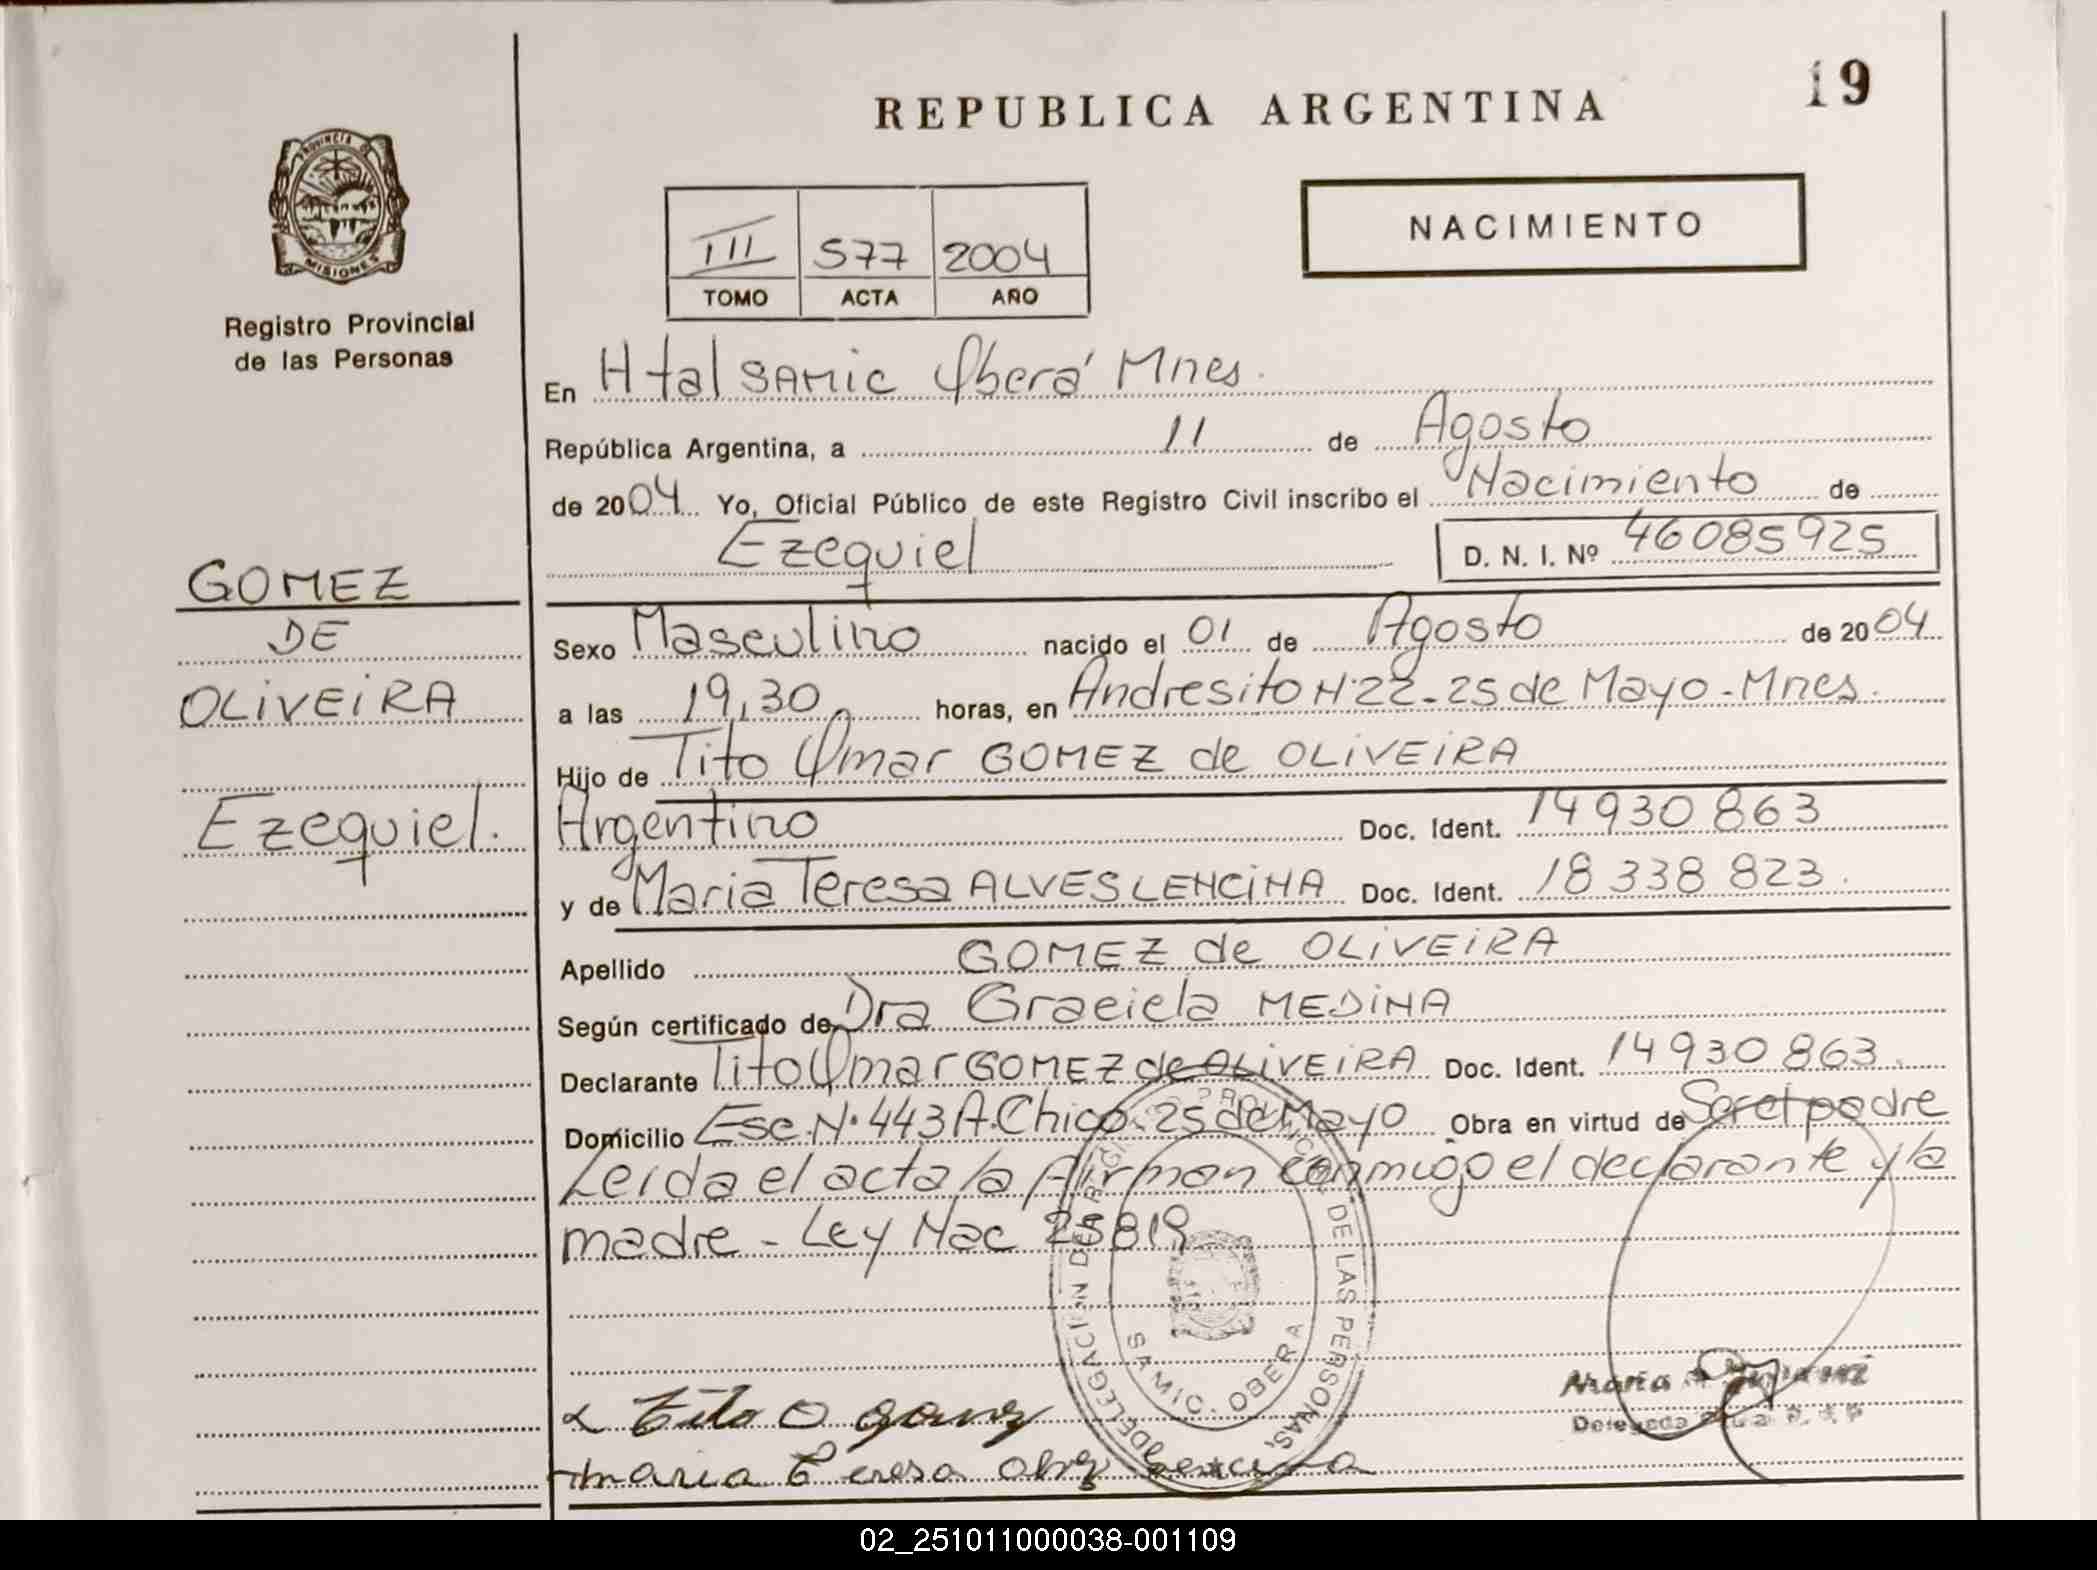 REPUBLICA ARGENTINA
19
PROVINCIA DE
MISIONES
Registro Provincial
de las Personas
III 577 2004
TOMO ACTA AÑO
NACIMIENTO
En Htal SAMIC Oberá Mnes.
República Argentina, a 11 de Agosto
de 2004 Yo, Oficial Público de este Registro Civil inscribo el Nacimiento de
Ezequiel D. N. I. Nº 46085925
GOMEZ
DE
OLIVEIRA
Ezequiel.
Sexo Masculino nacido el 01 de Agosto de 2004
a las 19,30 horas, en Andresito N°22-25 de Mayo-Mnes.
Hijo de Tito Omar GOMEZ de OLIVEIRA
Argentino Doc. Ident. 14930863
y de Maria Teresa ALVES LENCINA Doc. Ident. 18338823.
Apellido GOMEZ de OLIVEIRA
Según certificado de Dra Graciela MEDINA
Declarante Tito Omar GOMEZ de OLIVEIRA Doc. Ident. 14930863.
Domicilio Esc. N° 443 A. Chico. 25 de Mayo Obra en virtud de Ser el padre
Leida el acta la firman conmigo el declarante y la
madre - Ley Nac 25819
DELEGACION DEL REGISTRO PROVINCIAL DE LAS PERSONAS
SAMIC. OBERA
Tito O gomez
maria Teresa lencina
Maria
Delegada
02_251011000038-001109